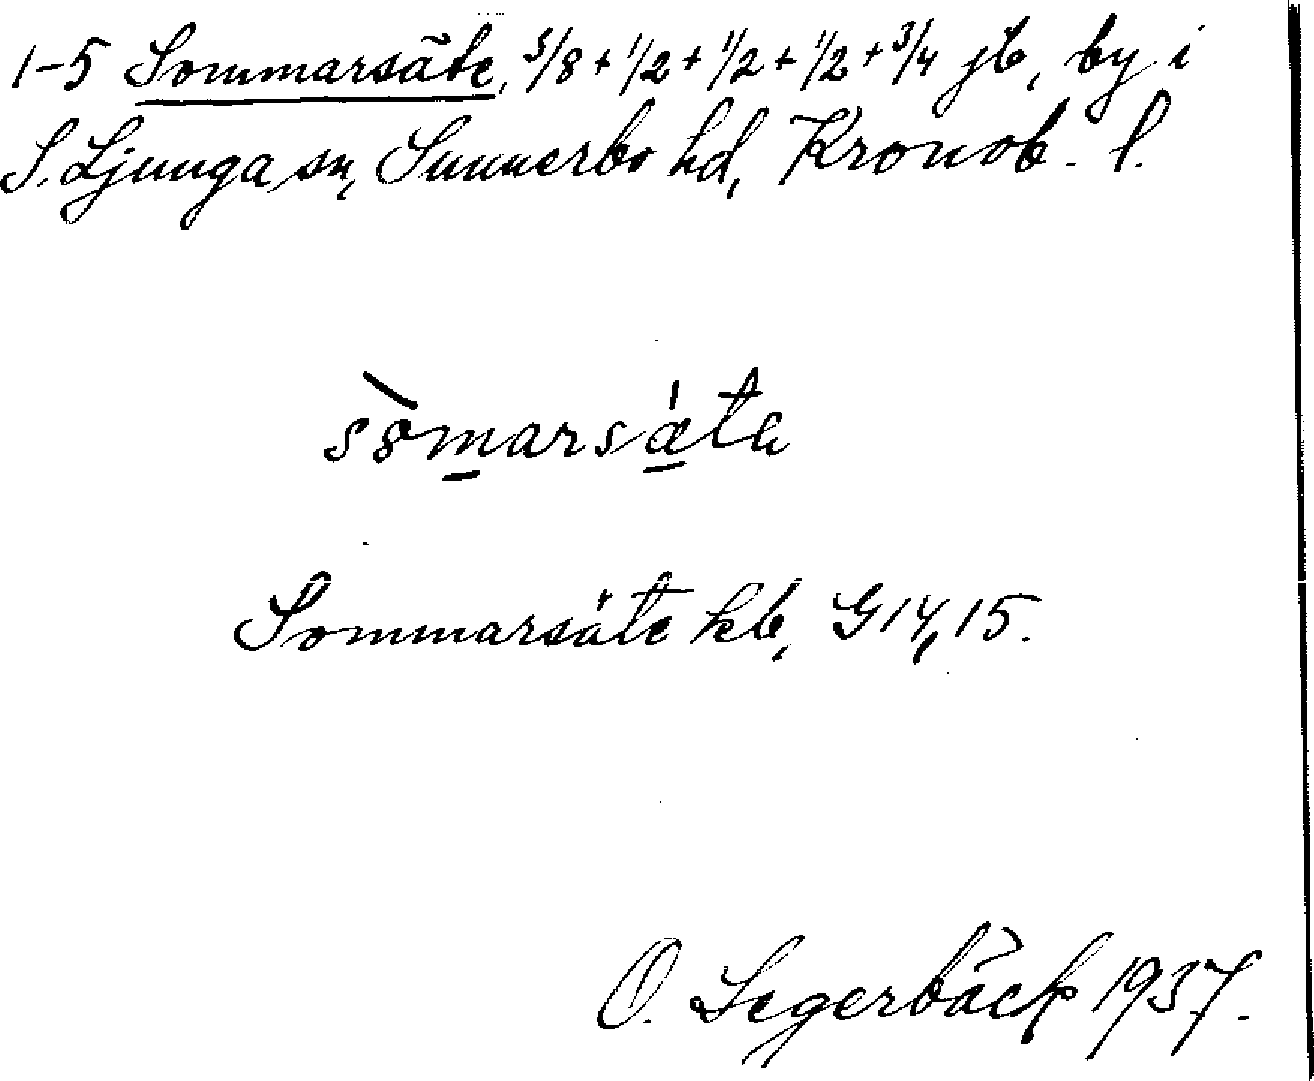 1-5 Sommarsäte, 5/8 + 1/2 + 1/2 + 1/2 + 3/4 jb, by i
S. Ljunga sn, Sunnerbo hd, Kronob. l.
sòmarsǽta
Sommarsäte kb, G14, 15.
O. Segerbäck 1937.